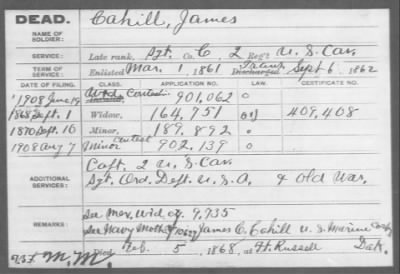 DEAD.
NAME OF SOLDIER:
Cahill, James
SERVICE:
Late rank, Sgt. Co. C 2 Reg't U.S. Cav.
TERM OF SERVICE:
Enlisted Mar. 1, 1861 Discharged Sept 6, 1862
DATE OF FILING. CLASS. APPLICATION NO. LAW. CERTIFICATE NO.
1908 June 19 Wid. Contest 901,062 0
1868 Sept. 1 Widow, 164,951 409,408
1870 Sept. 10 Minor, 189,892 0
1908 Aug 7 Minor contest 902,139 0
ADDITIONAL SERVICES:
Capt. 2 U.S. Cav.
Sgt. Ord. Dept. U.S.A. & Old War.
REMARKS:
See Mex. Wid. of 9,735
See Navy Moth 10627 James C. Cahill U.S. Marine Corps
Died Feb. 5, 1868, at Ft. Russell Dak.
M.M.